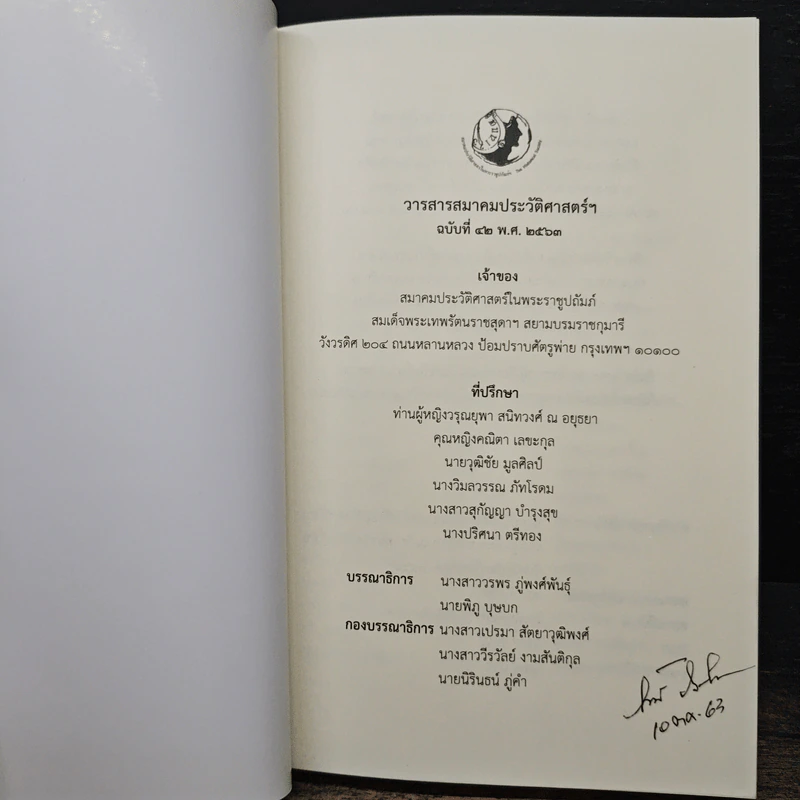 วารสารสมาคมประวัติศาสตร์ฯ
ฉบับที่ ๔๒ พ.ศ. ๒๕๖๓
เจ้าของ
สมาคมประวัติศาสตร์ในพระราชูปถัมภ์
สมเด็จพระเทพรัตนราชสุดาฯ สยามบรมราชกุมารี
วังวรดิศ ๒๐๔ ถนนหลานหลวง ป้อมปราบศัตรูพ่าย กรุงเทพฯ ๑๐๑๐๐
ที่ปรึกษา
ท่านผู้หญิงวรุณยุพา สนิทวงศ์ ณ อยุธยา
คุณหญิงคณิตา เลขะกุล
นายวุฒิชัย มูลศิลป์
นางวิมลวรรณ ภัทโรดม
นางสาวสุกัญญา บำรุงสุข
นางปริศนา ตรีทอง
บรรณาธิการ นางสาววรพร ภู่พงศ์พันธุ์
นายพิภู บุษบก
กองบรรณาธิการ นางสาวเปรมา สัตยาวุฒิพงศ์
นางสาววีรวัลย์ งามสันติกุล
นายนิรินธน์ ภู่คำ